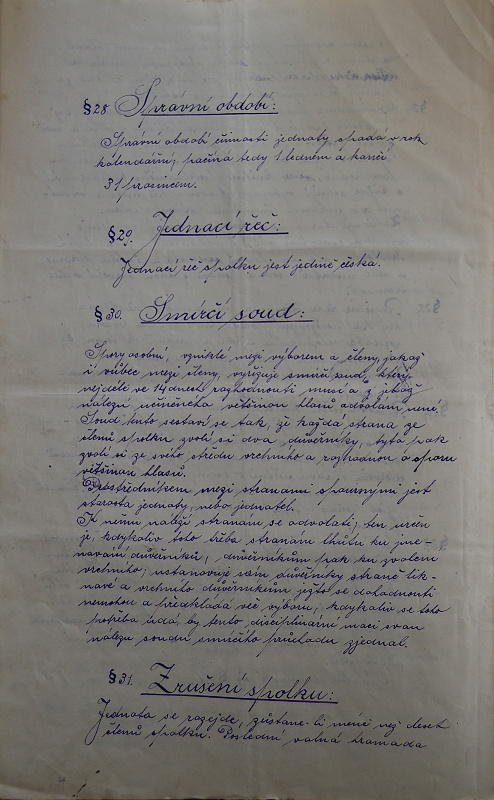 § 28 Správní období:
Správní období činnosti jednoty spadá v rok
kalendářní; počíná tedy 1 lednem a končí
31 prosincem.
§ 29. Jednací řeč:
Jednací řeč spolku jest jedině česká.
§ 30. Smírčí soud:
Spory osobní, vzniklé mezi výborem a členy, jakož
i vůbec mezi členy, vyřizuje smírčí soud, který
nejdéle ve 14 dnech rozhodnouti musí a z jehož
nálezu učiněného většinou hlasů odvolání není.
Soud tento sestaví se tak, že každá strana ze
členů spolku zvolí si dva důvěrníky, tyto pak
zvolí si ze svého středu vrchního a rozhodnou o sporu
většinou hlasů.
Prostředníkem mezi stranami spornými jest
starosta jednoty, nebo jednatel.
K němu náleží stranám se odvolati; ten určen
je, kdykoliv toho třeba stranám lhůtu ku jme-
nování důvěrníků, důvěrníkům pak ku zvolení
vrchního; ustanovuje sám důvěrníky straně lik-
navé a vrchního důvěrníkům ježto se dohodnouti
nemohou a předkládá věc výboru, kdykoliv se toho
potřeba udá, by tento disciplinární mocí svou
nálezu soudu smírčího průchodu zjednal.
§ 31. Zrušení spolku:
Jednota se rozejde, zůstane-li méně než deset
členů spolku. Poslední valná hromada